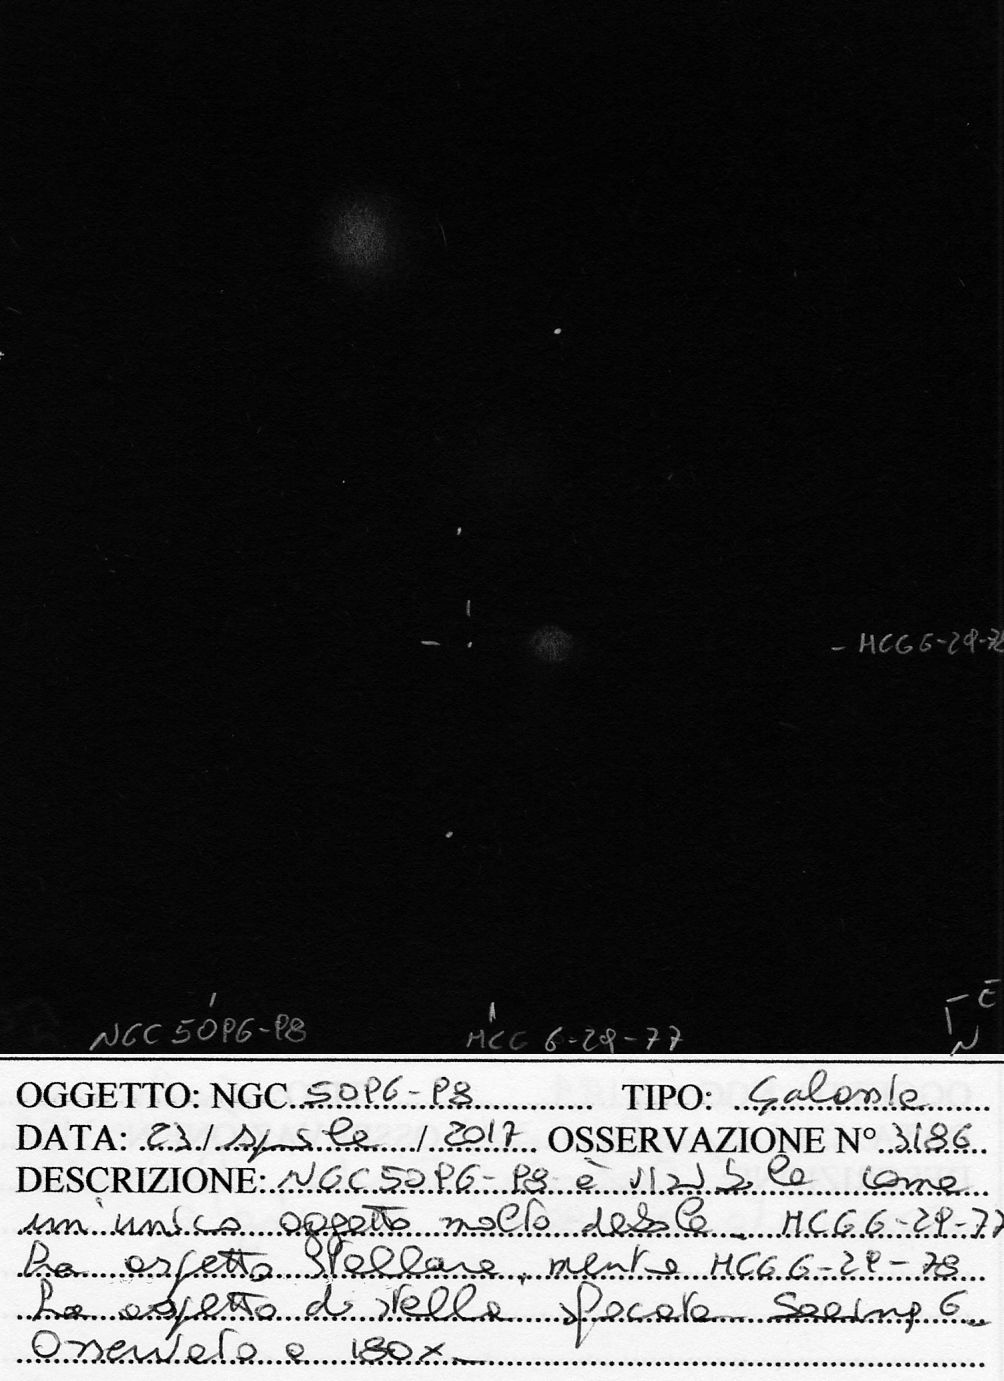 - MCG 6-29-78
E
NGC 5096-98
MCG 6-29-77
N
OGGETTO: NGC 5096-98 TIPO: Galassie
DATA: 23 / aprile / 2017 OSSERVAZIONE N° 3186
DESCRIZIONE: NGC 5096-98 è visibile come
un unico oggetto molto debole. MCG 6-29-77
ha aspetto stellare, mentre MCG 6-29-78
ha aspetto di stella sfocata. Seeing 6.
Osservato a 180x.